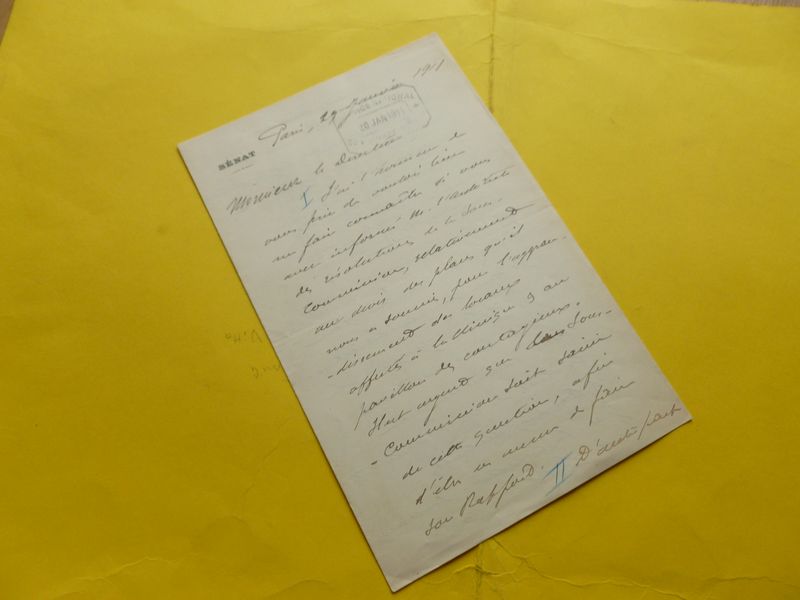 SÉNAT
Paris, 19 Janvier 1911
20 JAN 1911
Monsieur le Directeur
I J'ai l'honneur de
vous prier de vouloir bien
me faire connaître si vous
avez informé M. l'architecte
des résolutions de la Sous-
Commission, relativement
au devis des plans qu'il
nous a soumis, pour l'agran-
-dissement des locaux
affectés à la clinique &
pavillon des contagieux.
Il est urgent que la Sous-
-Commission soit saisie
de cette question, afin
d'être en mesure de faire
son Rapport. II D'autre part